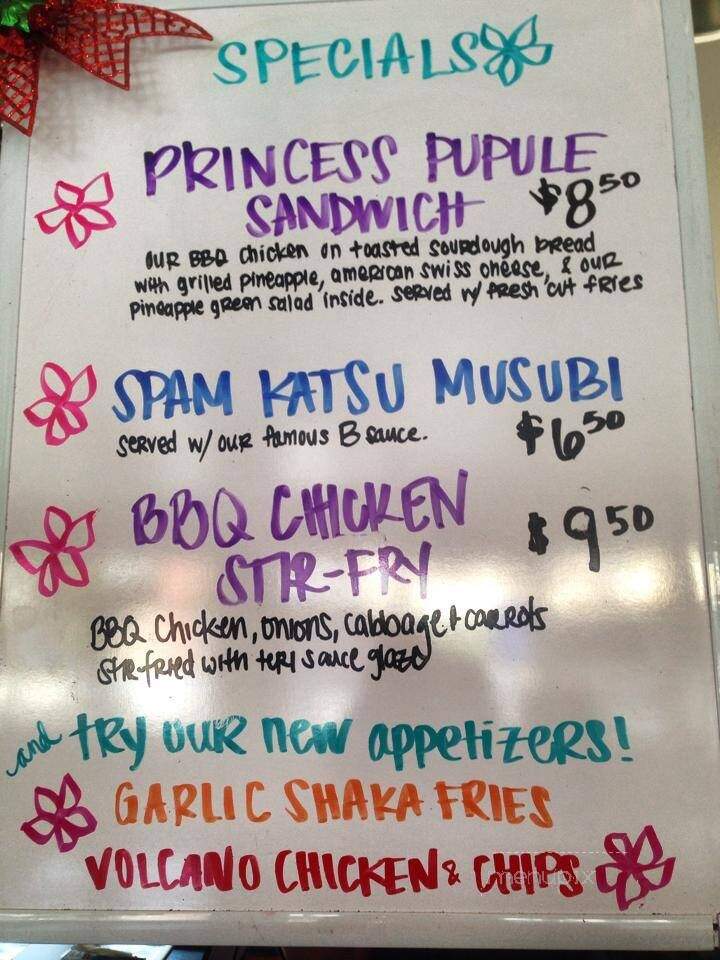 SPECIALS
PRINCESS PUPULE
SANDWICH $8 50
OUR BBQ Chicken on toasted sourdough bread
with grilled pineapple, american swiss cheese, & our
pineapple green salad inside. served w/ fresh cut fries
SPAM KATSU MUSUBI
served w/ our famous B sauce. $6 50
BBQ CHICKEN $9 50
STIR-FRY
BBQ Chicken, onions, cabbage + carrots
stir-fried with teri sauce glaze
and try our new appetizers!
GARLIC SHAKA FRIES
VOLCANO CHICKEN & CHIPS
menupix